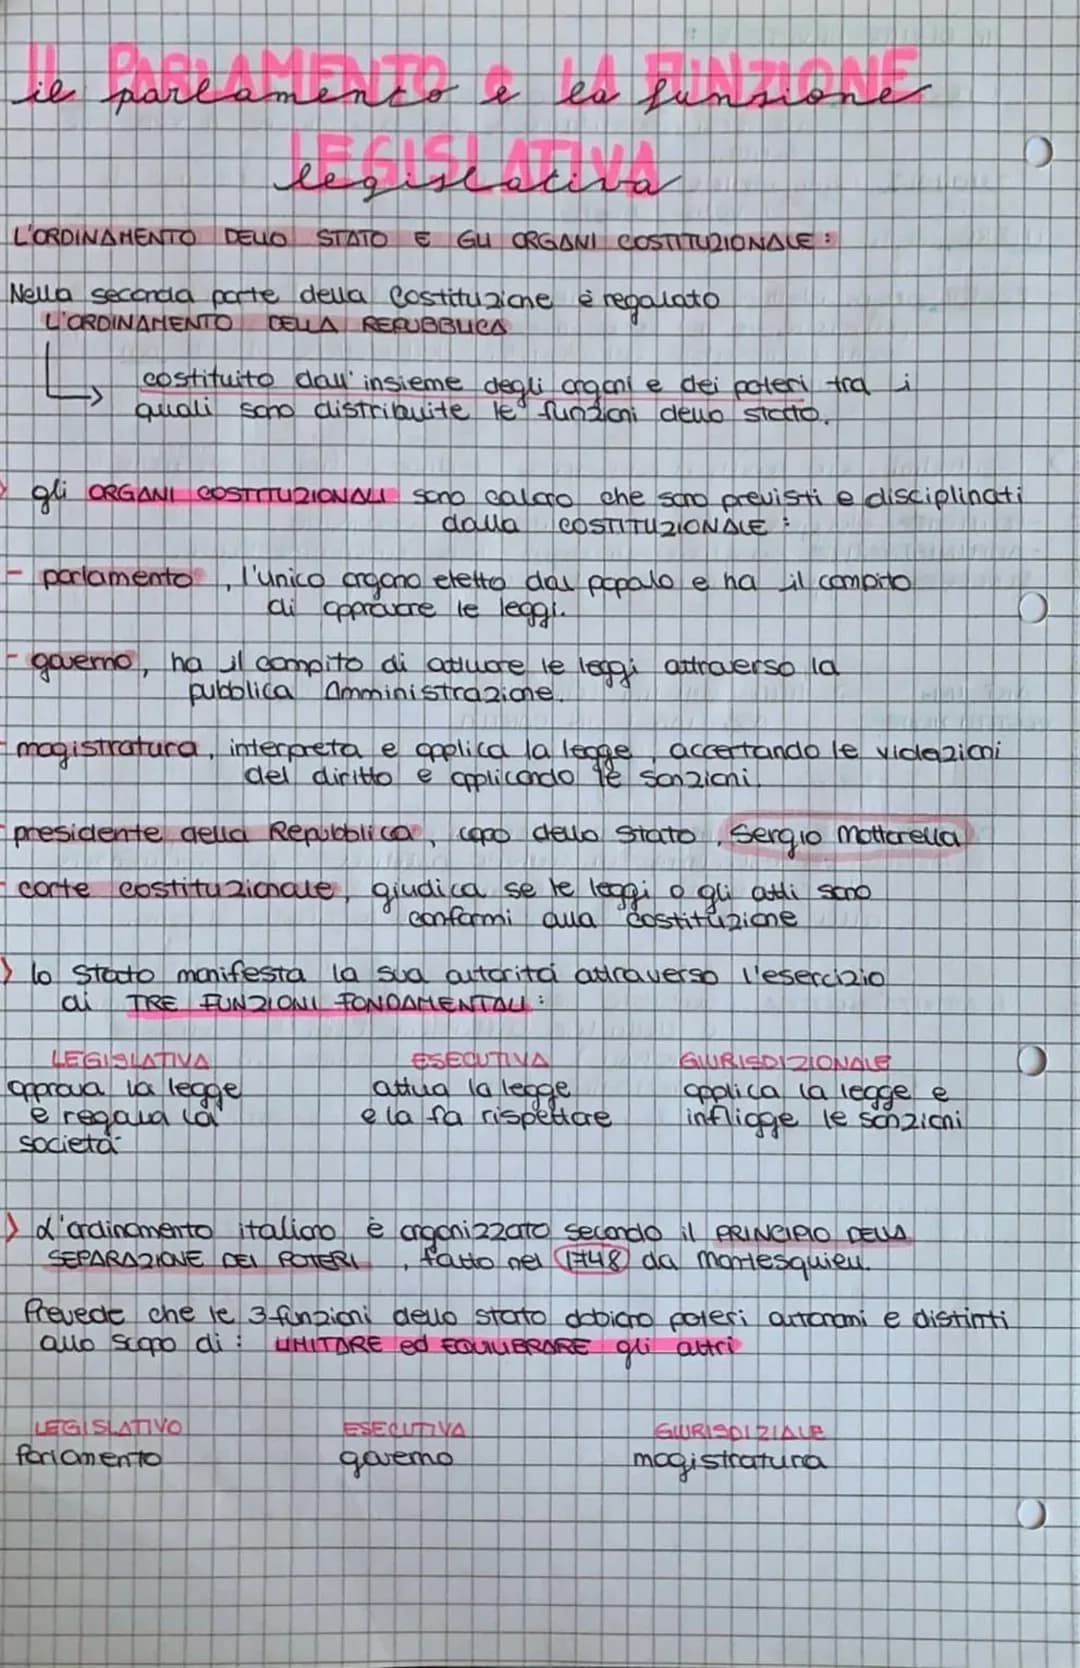 Il PARLAMENTO e LA FUNZIONE
il parlamento e la funzione
LEGISLATIVA
legislativa
L'ORDINAMENTO DELLO STATO E GLI ORGANI COSTITUZIONALE:
Nella seconda parte della Costituzione è regolato
L'ORDINAMENTO DELLA REPUBBLICA
costituito dall'insieme degli organi e dei poteri tra i
quali sono distribuite le funzioni dello stato.
gli ORGANI COSTITUZIONALI sono coloro che sono previsti e disciplinati
dalla COSTITUZIONALE:
- parlamento, l'unico organo eletto dal popolo e ha il compito
di approvare le leggi.
- governo, ha il compito di attuare le leggi attraverso la
pubblica Amministrazione.
- magistratura, interpreta e applica la legge, accertando le violazioni
del diritto e applicando le sanzioni.
- presidente della Repubblica, capo dello Stato, Sergio Mattarella
- corte costituzionale, giudica se le leggi o gli atti sono
conformi alla costituzione
> lo Stato manifesta la sua autorità attraverso l'esercizio
di TRE FUNZIONI FONDAMENTALI:
LEGISLATIVA ESECUTIVA GIURISDIZIONALE
approva la legge attua la legge applica la legge e
e regola la e la fa rispettare infligge le sanzioni
società
> L'ordinamento italiano è organizzato secondo il PRINCIPIO DELLA
SEPARAZIONE DEI POTERI, fatto nel 1748 da Montesquieu.
Prevede che le 3 funzioni dello stato abbiano poteri autonomi e distinti
allo scopo di: LIMITARE ed EQUILIBRARE gli altri
LEGISLATIVO ESECUTIVA GIURISDIZIALE
Parlamento governo magistratura